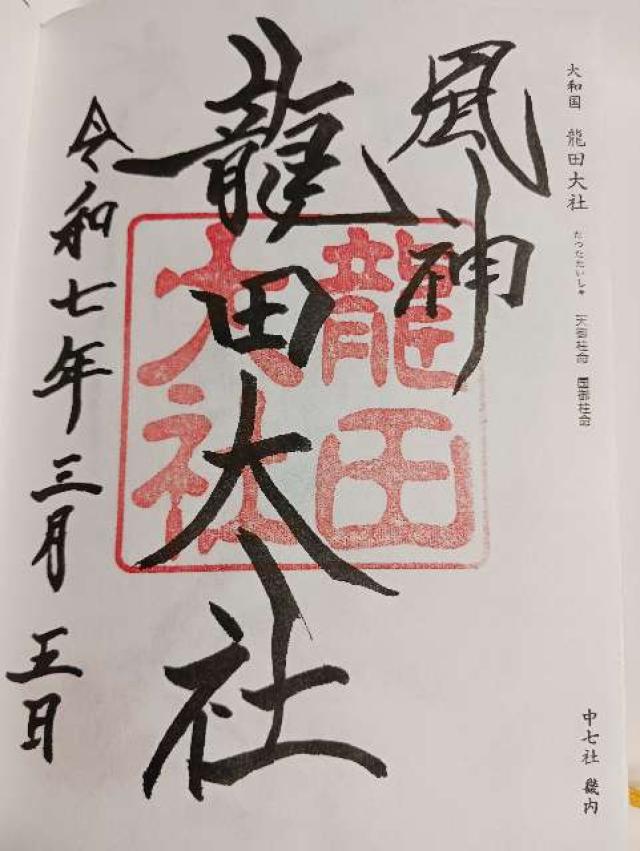 大和国 龍田大社 たつたたいしゃ 天御柱命 国御柱命
中七社 畿内
風神
龍田大社
龍田大社
令和七年三月五日